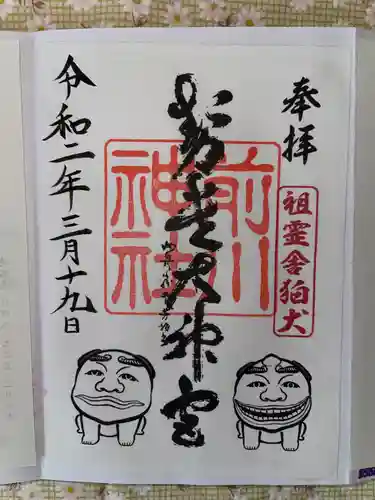 奉拝
祖霊舎狛犬
前川
神社
大神宮
令和二年三月十九日